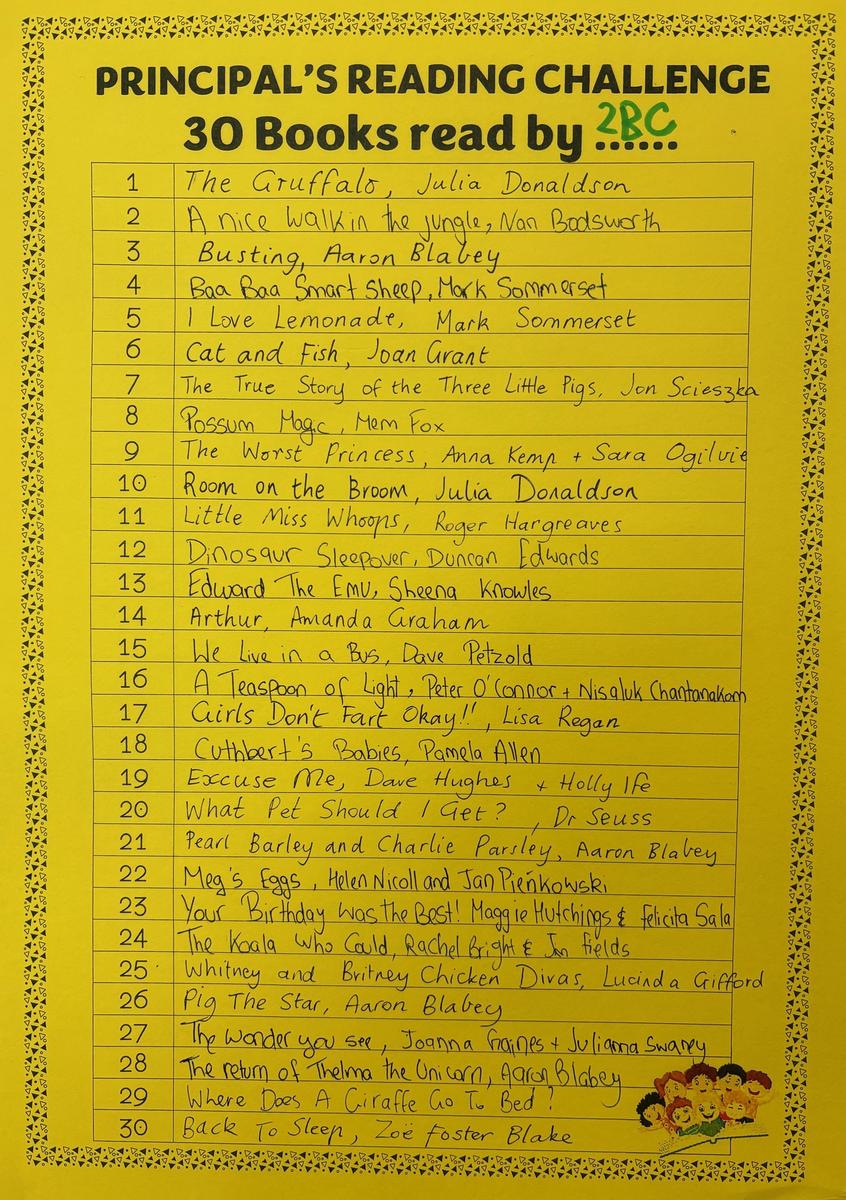 PRINCIPAL'S READING CHALLENGE
30 Books read by 2BC ......
1 The Gruffalo, Julia Donaldson
2 A nice walk in the jungle, Nan Bodsworth
3 Busting, Aaron Blabey
4 Baa Baa Smart Sheep, Mark Sommerset
5 I Love Lemonade, Mark Sommerset
6 Cat and Fish, Joan Grant
7 The True Story of the Three Little Pigs, Jon Scieszka
8 Possum Magic, Mem Fox
9 The Worst Princess, Anna Kemp + Sara Ogilvie
10 Room on the Broom, Julia Donaldson
11 Little Miss Whoops, Roger Hargreaves
12 Dinosaur Sleepover, Duncan Edwards
13 Edward The Emu, Sheena Knowles
14 Arthur, Amanda Graham
15 We Live in a Bus, Dave Petzold
16 A Teaspoon of Light, Peter O'Connor + Nisaluk Chantanakom
17 Girls Don't Fart Okay!!, Lisa Regan
18 Cuthbert's Babies, Pamela Allen
19 Excuse Me, Dave Hughes + Holly Ife
20 What Pet Should I Get?, Dr Seuss
21 Pearl Barley and Charlie Parsley, Aaron Blabey
22 Meg's Eggs, Helen Nicoll and Jan Pieńkowski
23 Your Birthday was the Best! Maggie Hutchings & Felicita Sala
24 The Koala Who Could, Rachel Bright & Jim Fields
25 Whitney and Britney Chicken Divas, Lucinda Gifford
26 Pig The Star, Aaron Blabey
27 The wonder you see, Joanna Gaines + Julianna Swaney
28 The return of Thelma the Unicorn, Aaron Blabey
29 Where Does A Giraffe Go To Bed?
30 Back To Sleep, Zoë Foster Blake